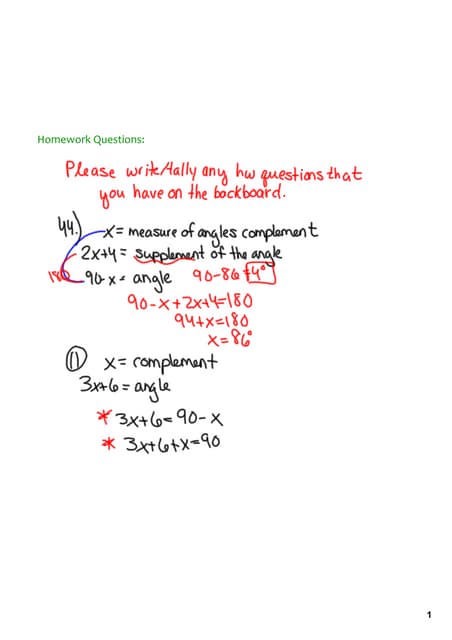 Homework Questions:
Please write/tally any hw questions that
you have on the backboard.
44.) x = measure of angles complement
2x+4 = supplement of the angle
180 90-x = angle 90-86=4°
90-x+2x+4=180
94+x=180
x=86°
11 x = complement
3x+6 = angle
* 3x+6=90-x
* 3x+6+x=90
1